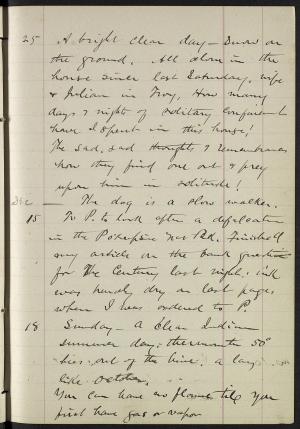 25 A bright clear day — Snow on
the ground. All alone in the
house since last Saturday, wife
& Julian in Troy. How many
days & nights of solitary confinement
have I spent in this house!
The sad, sad thoughts & remembrances
how they find one out & prey
upon him in solitude!
Dec — The dog is a slow walker.
15 To P. to look after a defalcation
in the Po'keepsie Nat Bk. Finished
my article on the bank question
for The Century last night; ink
was hardly dry on last page
when I was ordered to P.
18 Sunday — A clear Indian
summer day; thermometer 50°
bees out of the hive. a day
like October.
You can have no flame til you
first have gas or vapor